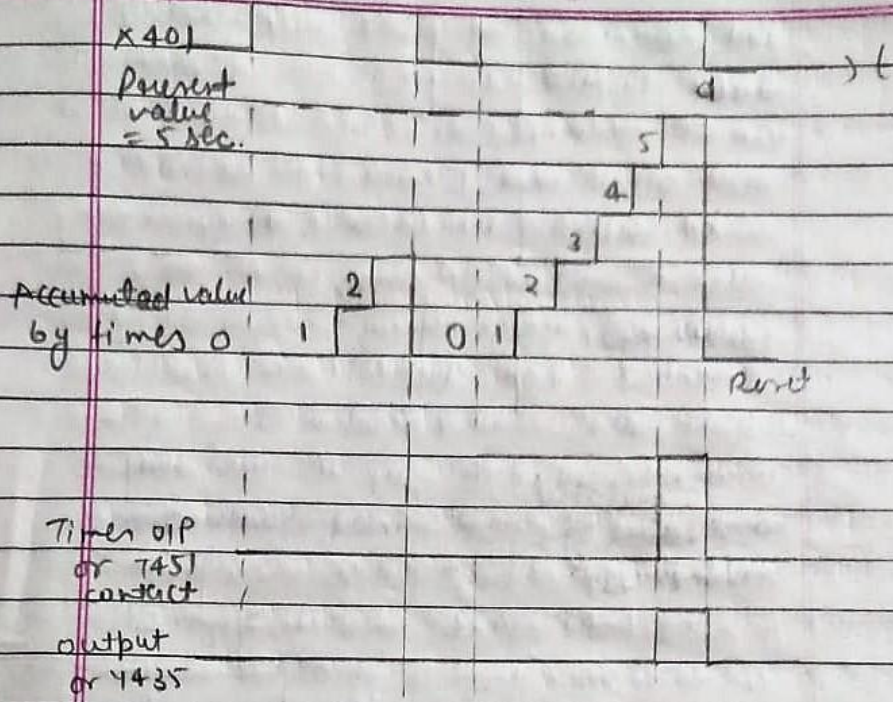 X401
Present
value
= 5 sec.
d
5
4
3
Accumulated value 2 2
by times 0 1 0 1
Reset
Timer O/P
or T451
contact
output
or Y435